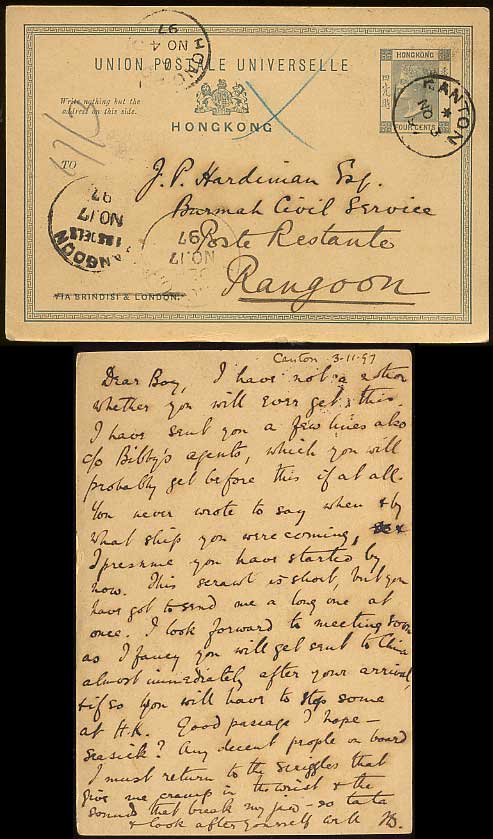 UNION POSTALE UNIVERSELLE
HONGKONG
Write nothing but the
address on this side.
HONGKONG
FOUR CENTS
CANTON
NO 3
HONG
NO 4
97
TO
J. P. Hardiman Esq.
Burmah Civil Service
Poste Restante
Rangoon
RANGOON
NO.17
97
NO.17
97
VIA BRINDISI & LONDON.
Canton 3-11-97
Dear Boy, I have not a notion
whether you will ever get this.
I have sent you a few lines also
c/o Bibby's agents, which you will
probably get before this if at all.
You never wrote to say when & by
what ship you were coming,
I presume you have started by
now. This scrawl is short, but you
have got to send me a long one at
once. I look forward to meeting soon
as I fancy you will get sent to China
almost immediately after your arrival,
& if so you will have to stop some
at H.K. Good passage I hope —
seasick? Any decent people on board
I must return to the scriggles that
give me cramp in the wrist & the
sounds that break my jaw — so ta ta
& look after yourself